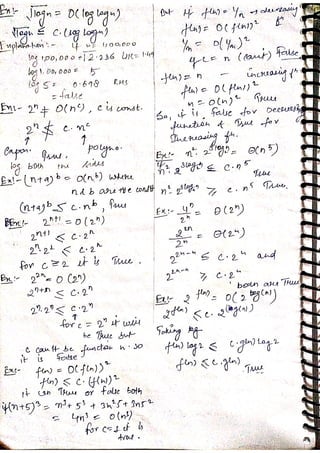 Ex:- √logn = O(loglogn)
√logn ≤ c.(loglogn)
Explanation:- if n = 100,000
log 100,000 = √5 2.236
log 100,000 = 5
log 5 = 0.698 RHS
= false
Ex:- 2ⁿ ≠ O(nᶜ), c is const.
2ⁿ ≰ c.nᶜ
Expon. polyno.
True.
log both the sides
Ex:- (n+a)ᵇ = O(nᵇ) where
a & b are the const
(n+a)ᵇ ≤ c.nᵇ, True
Ex:- 2ⁿ⁺¹ = O(2ⁿ)
2ⁿ⁺¹ ≤ c.2ⁿ
2ⁿ.2¹ ≤ c.2ⁿ
for c ≥ 2 it is True.
Ex:- 2²ⁿ = O(2ⁿ)
2ⁿ⁺ⁿ ≤ c.2ⁿ
2ⁿ.2ⁿ ≤ c.2ⁿ
for c = 2ⁿ it will
be True but
c can't be function n. so
it is False
Ex:- f(n) = O(f(n))²
f(n) ≤ c.(f(n))²
it can True or false both
if (n+5)³ = n³+5³+3n²5+3n5²
= 4n³ = O(n³)
for c=1 it is
true.
But if f(n) = 1/n → decreasing fⁿ
f(n) = O(f(n))²
1/n = O(1/n)²
c = n (can't) False
f(n) = n - increasing fⁿ
f(n) = O(f(n))²
n = O(n)² True
So, it is false for Decreasing
function & True for
Increasing fⁿ.
n².2³ˡᵒᵍⁿ ≤ c.n⁵
True
n².2³ˡᵒᵍⁿ ≥ c.n⁵ True.
Ex:- 4ⁿ/2ⁿ = θ(2ⁿ)
2²ⁿ/2ⁿ = θ(2ⁿ)
2²ⁿ⁻ⁿ ≤ c.2ⁿ and
2²ⁿ⁻ⁿ ≥ c.2ⁿ
both are True
Ex:- 2ᶠ⁽ⁿ⁾ = O(2ᵍ⁽ⁿ⁾)
2ᶠ⁽ⁿ⁾ ≤ c.2ᵍ⁽ⁿ⁾
Taking log
f(n) log2 ≤ c.g(n) log2
f(n) ≤ c.g(n)
True